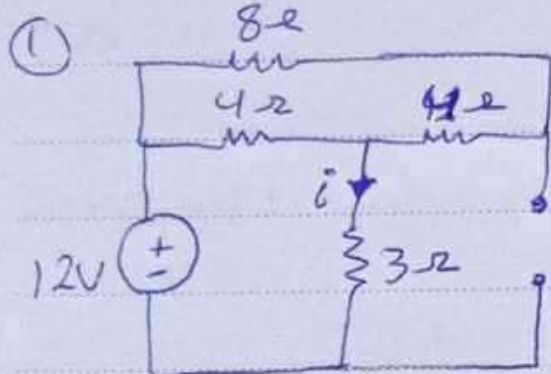 ①
8Ω
4Ω 4Ω
i
12V + - 3Ω